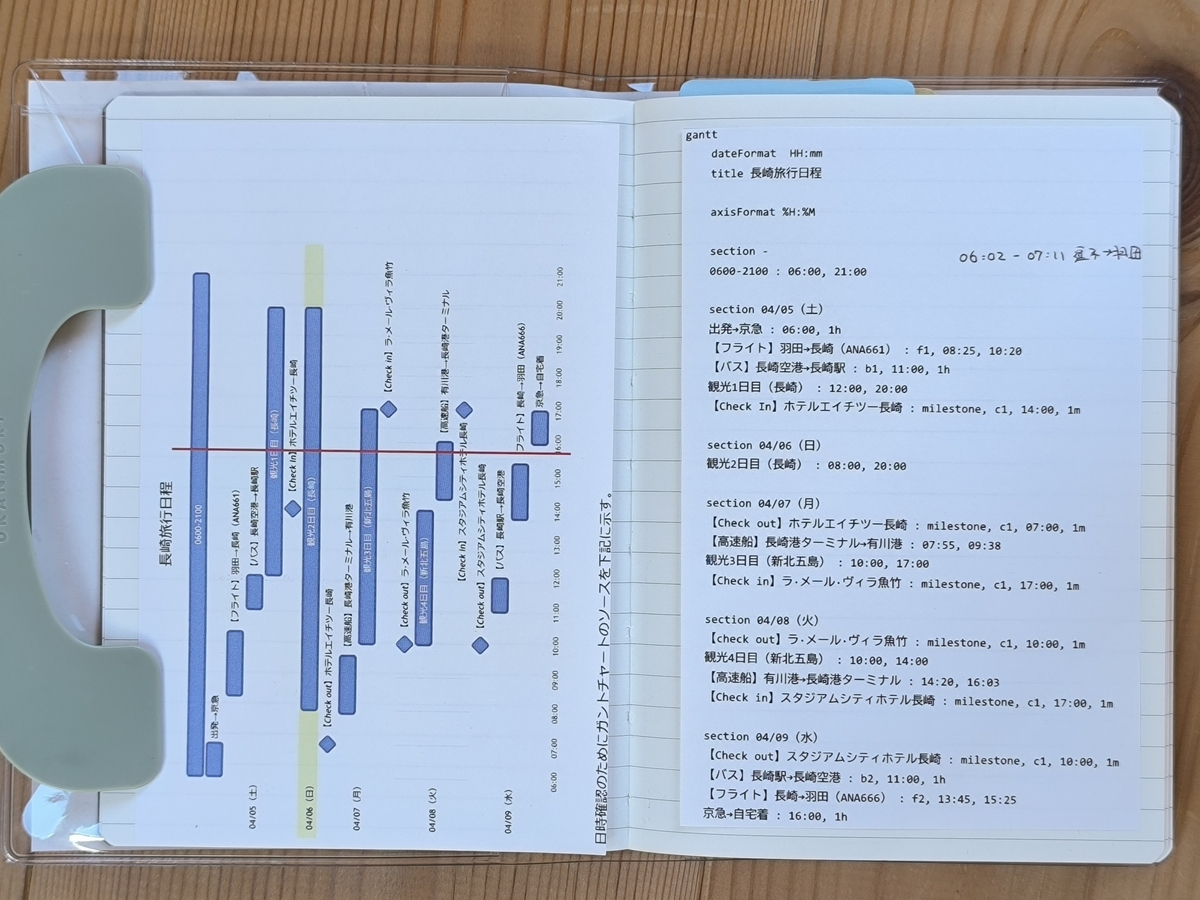 長崎旅行日程
0600-2100
出発→京急
【フライト】羽田→長崎（ANA661）
【バス】長崎空港→長崎駅
観光1日目（長崎）
【Check in】ホテルエイチツー長崎
観光2日目（長崎）
【Check out】ホテルエイチツー長崎
【高速船】長崎港ターミナル→有川港
観光3日目（新北五島）
【Check in】ラ・メール・ヴィラ魚竹
【check out】ラ・メール・ヴィラ魚竹
観光4日目（新北五島）
【高速船】有川港→長崎港ターミナル
【Check in】スタジアムシティホテル長崎
【Check out】スタジアムシティホテル長崎
【バス】長崎駅→長崎空港
フライト】長崎→羽田（ANA666）
京急→自宅着
04/05（土）
04/06（日）
04/07（月）
04/08（火）
04/09（水）
06:00 07:00 08:00 09:00 10:00 11:00 12:00 13:00 14:00 15:00 16:00 17:00 18:00 19:00 20:00 21:00
日時確認のためにガントチャートのソースを下記に示す。
gantt
dateFormat HH:mm
title 長崎旅行日程
axisFormat %H:%M
section -
06:02 - 07:11 →羽田
0600-2100 : 06:00, 21:00
section 04/05（土）
出発→京急 : 06:00, 1h
【フライト】羽田→長崎（ANA661） : f1, 08:25, 10:20
【バス】長崎空港→長崎駅 : b1, 11:00, 1h
観光1日目（長崎） : 12:00, 20:00
【Check In】ホテルエイチツー長崎 : milestone, c1, 14:00, 1m
section 04/06（日）
観光2日目（長崎） : 08:00, 20:00
section 04/07（月）
【Check out】ホテルエイチツー長崎 : milestone, c1, 07:00, 1m
【高速船】長崎港ターミナル→有川港 : 07:55, 09:38
観光3日目（新北五島） : 10:00, 17:00
【Check in】ラ・メール・ヴィラ魚竹 : milestone, c1, 17:00, 1m
section 04/08（火）
【check out】ラ・メール・ヴィラ魚竹 : milestone, c1, 10:00, 1m
観光4日目（新北五島） : 10:00, 14:00
【高速船】有川港→長崎港ターミナル : 14:20, 16:03
【Check in】スタジアムシティホテル長崎 : milestone, c1, 17:00, 1m
section 04/09（水）
【Check out】スタジアムシティホテル長崎 : milestone, c1, 10:00, 1m
【バス】長崎駅→長崎空港 : b2, 11:00, 1h
【フライト】長崎→羽田（ANA666） : f2, 13:45, 15:25
京急→自宅着 : 16:00, 1h